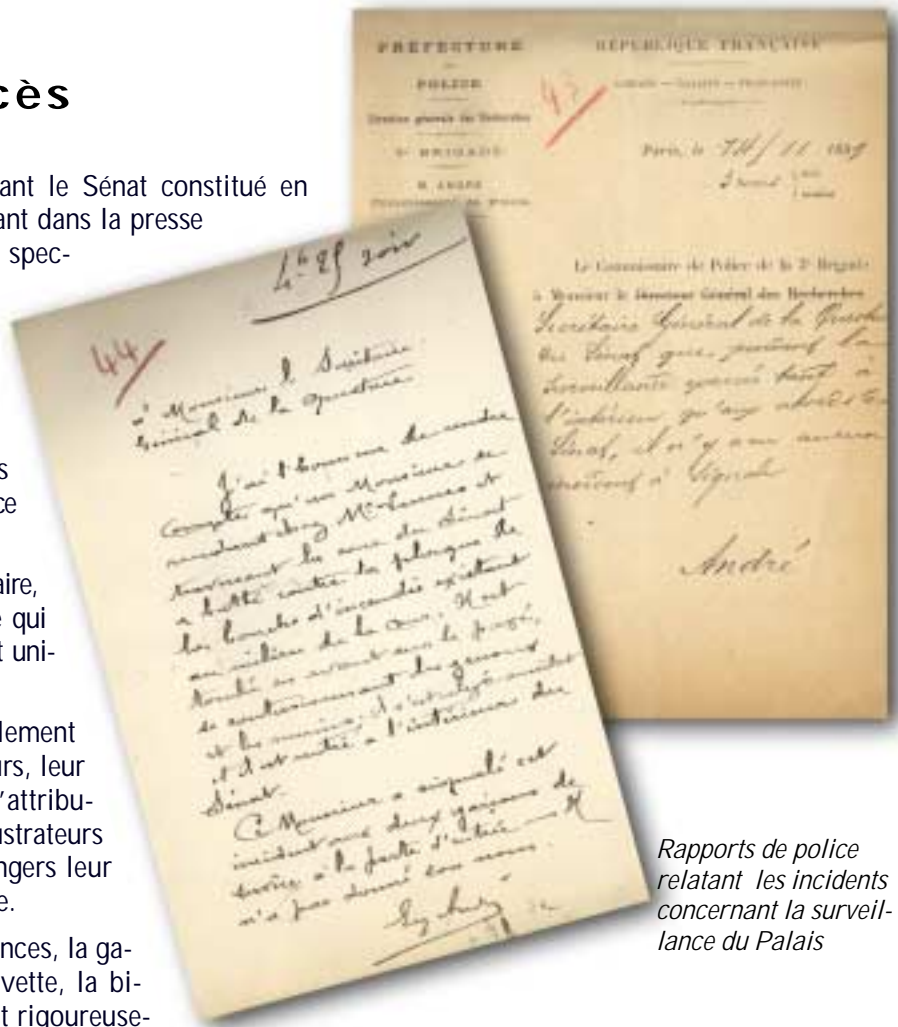 cès
ant le Sénat constitué en
ant dans la presse
spec-
s
ce
aire,
e qui
t uni-
lement
urs, leur
'attribu-
ustrateurs
ngers leur
e.
nces, la ga-
vette, la bi-
t rigoureuse-
PRÉFECTURE
DE
POLICE
Direction générale des Recherches
BRIGADE
M. ANDRÉ
RÉPUBLIQUE FRANÇAISE
LIBERTÉ — ÉGALITÉ — FRATERNITÉ
43
Paris, le 14/11 1889
Le Commissaire de Police de la Brigade
à Monsieur le Directeur Général des Recherches
Secrétaire Général de la Questure
du Sénat que, pendant la
surveillance exercée tant à
l'intérieur qu'aux abords du
Sénat, il n'y a eu aucun
à signaler
André
4h 25 soir
44
à Monsieur le Secrétaire
Général de la Questure
J'ai l'honneur de rendre
compte qu'un Monsieur se
rendant chez Mr et
traversant la cour du Sénat
a butté contre la plaque de
la bouche d'incendie existant
au milieu de la cour. Il est
tombé en avant sur le pavé,
se contusionnant les genoux
et les mains, il s'est
et il est entré à l'intérieur du
Sénat.
Ce Monsieur a signalé cet
incident aux deux garçons de
service à la porte d'entrée – Il
n'a pas donné son nom.
Rapports de police
relatant les incidents
concernant la surveil-
lance du Palais